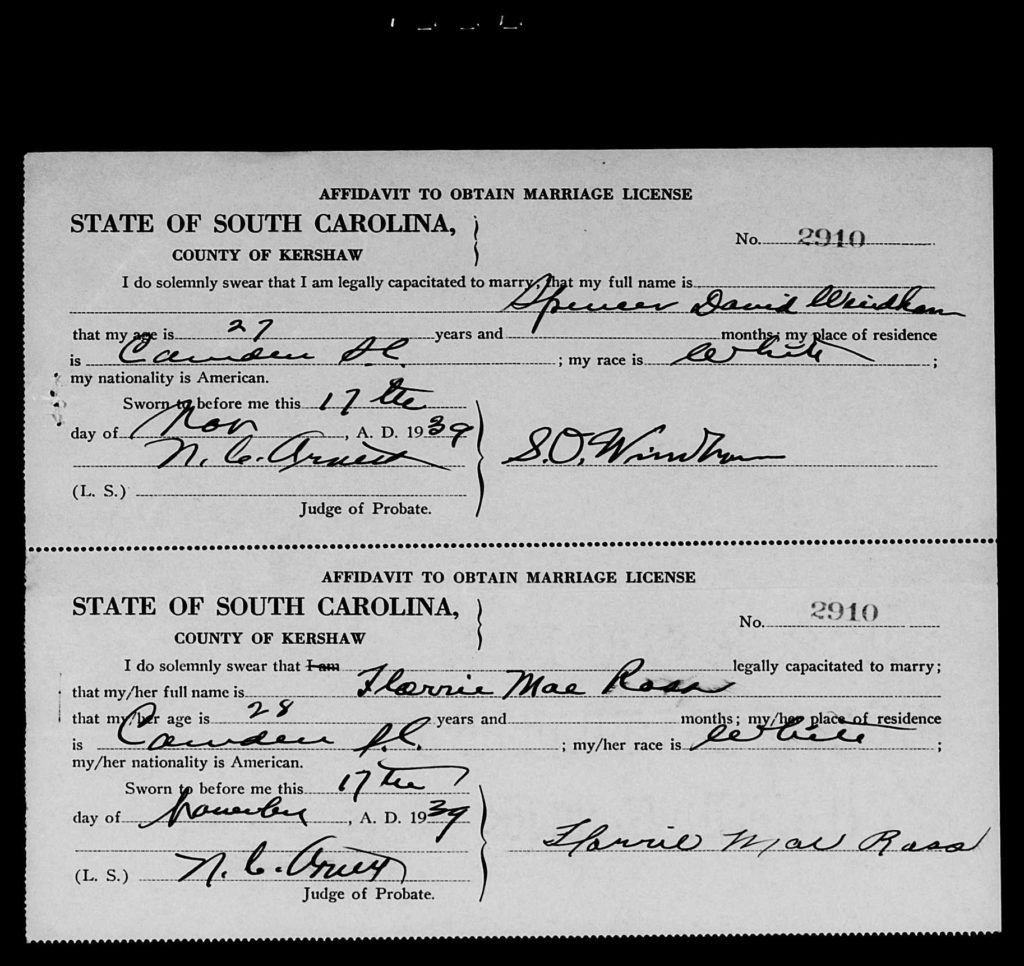 AFFIDAVIT TO OBTAIN MARRIAGE LICENSE
STATE OF SOUTH CAROLINA,
No. 2910
COUNTY OF KERSHAW
I do solemnly swear that I am legally capacitated to marry, that my full name is
Spencer David Windham
that my age is 27 years and months; my place of residence
is Camden S.C. ; my race is White ;
my nationality is American.
Sworn to before me this 17th
day of Nov , A. D. 1939
N. C. Arnett S.D. Windham
(L. S.)
Judge of Probate.
AFFIDAVIT TO OBTAIN MARRIAGE LICENSE
STATE OF SOUTH CAROLINA,
No. 2910
COUNTY OF KERSHAW
I do solemnly swear that I am legally capacitated to marry;
that my/her full name is Florrie Mae Ross
that my/her age is 28 years and months; my/her place of residence
is Camden S.C. ; my/her race is White ;
my/her nationality is American.
Sworn to before me this 17th
day of November , A. D. 1939
Florrie Mae Ross
(L. S.) N. C. Arnett
Judge of Probate.